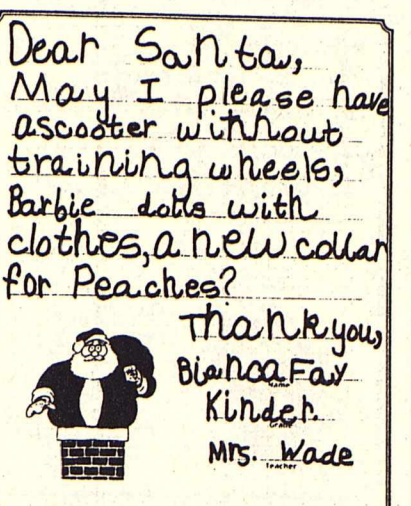 Dear Santa,
May I please have
ascooter without
training wheels,
Barbie dolls with
clothes, a new collar
for Peaches?
Thank you,
Bianca Fay
Name
Kinder.
Grade
Mrs. Wade
Teacher